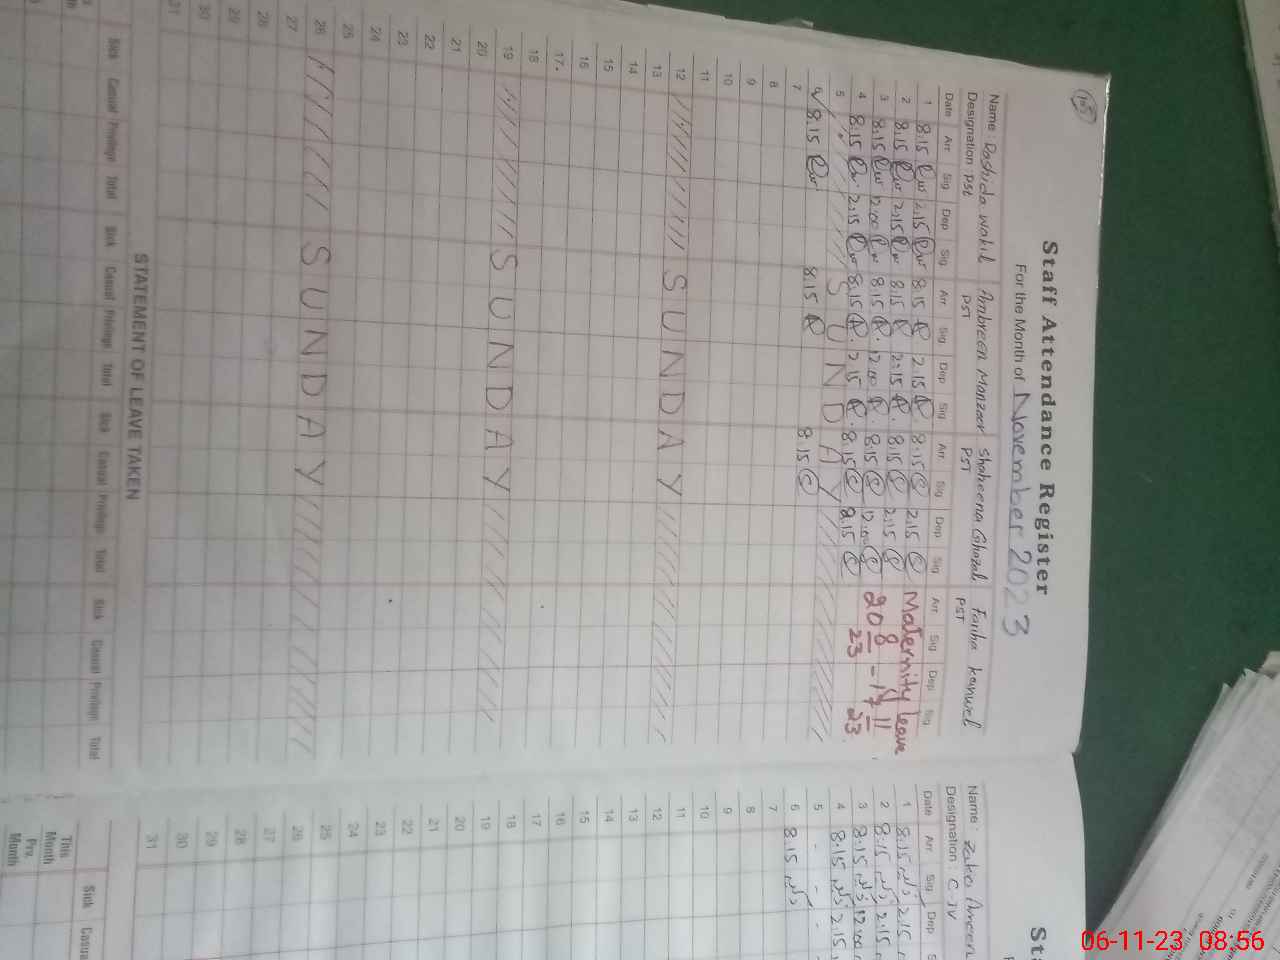 Staff Attendance Register
For the Month of November 2023
Name: Rashida Wakil Ambreen Manzoor Shaheena Ghazali Fariha Kanwel
Designation: PST PST PST PST
Date Arr Sig Dep Sig Arr Sig Dep Sig Arr Sig Dep Sig Arr Sig Dep Sig
1 8.15 2.15 8.15 2.15 8.15 2.15 Maternity leave
2 8.15 2.15 8.15 2.15 8.15 2.15
3 8.15 12.00 8.15 12.00 8.15 12.00
4 8.15 2.15 8.15 2.15 8.15 2.15
20 8 23 - 17 11 23
5 SUNDAY
7 8.15 8.15 8.15
8
9
10
11
12 SUNDAY
13
14
15
16
17
18
19 SUNDAY
20
21
22
23
24
25
26 SUNDAY
27
28
29
30
31
STATEMENT OF LEAVE TAKEN
Sick Casual Privilege Total Sick Casual Privilege Total Sick Casual Privilege Total Sick Casual Privilege Total
Name: Zakia Ameen
Designation: CTV
Date Arr Sig Dep
1 8.15 2.15
2 8.15 2.15
3 8.15 12.00
4 8.15 2.15
5 - - -
6 8.15
7
8
9
10
11
12
13
14
15
16
17
18
19
20
21
22
23
24
25
26
27
28
29
30
31
Sick Casual
This Month
Prv. Month
06-11-23 08:56